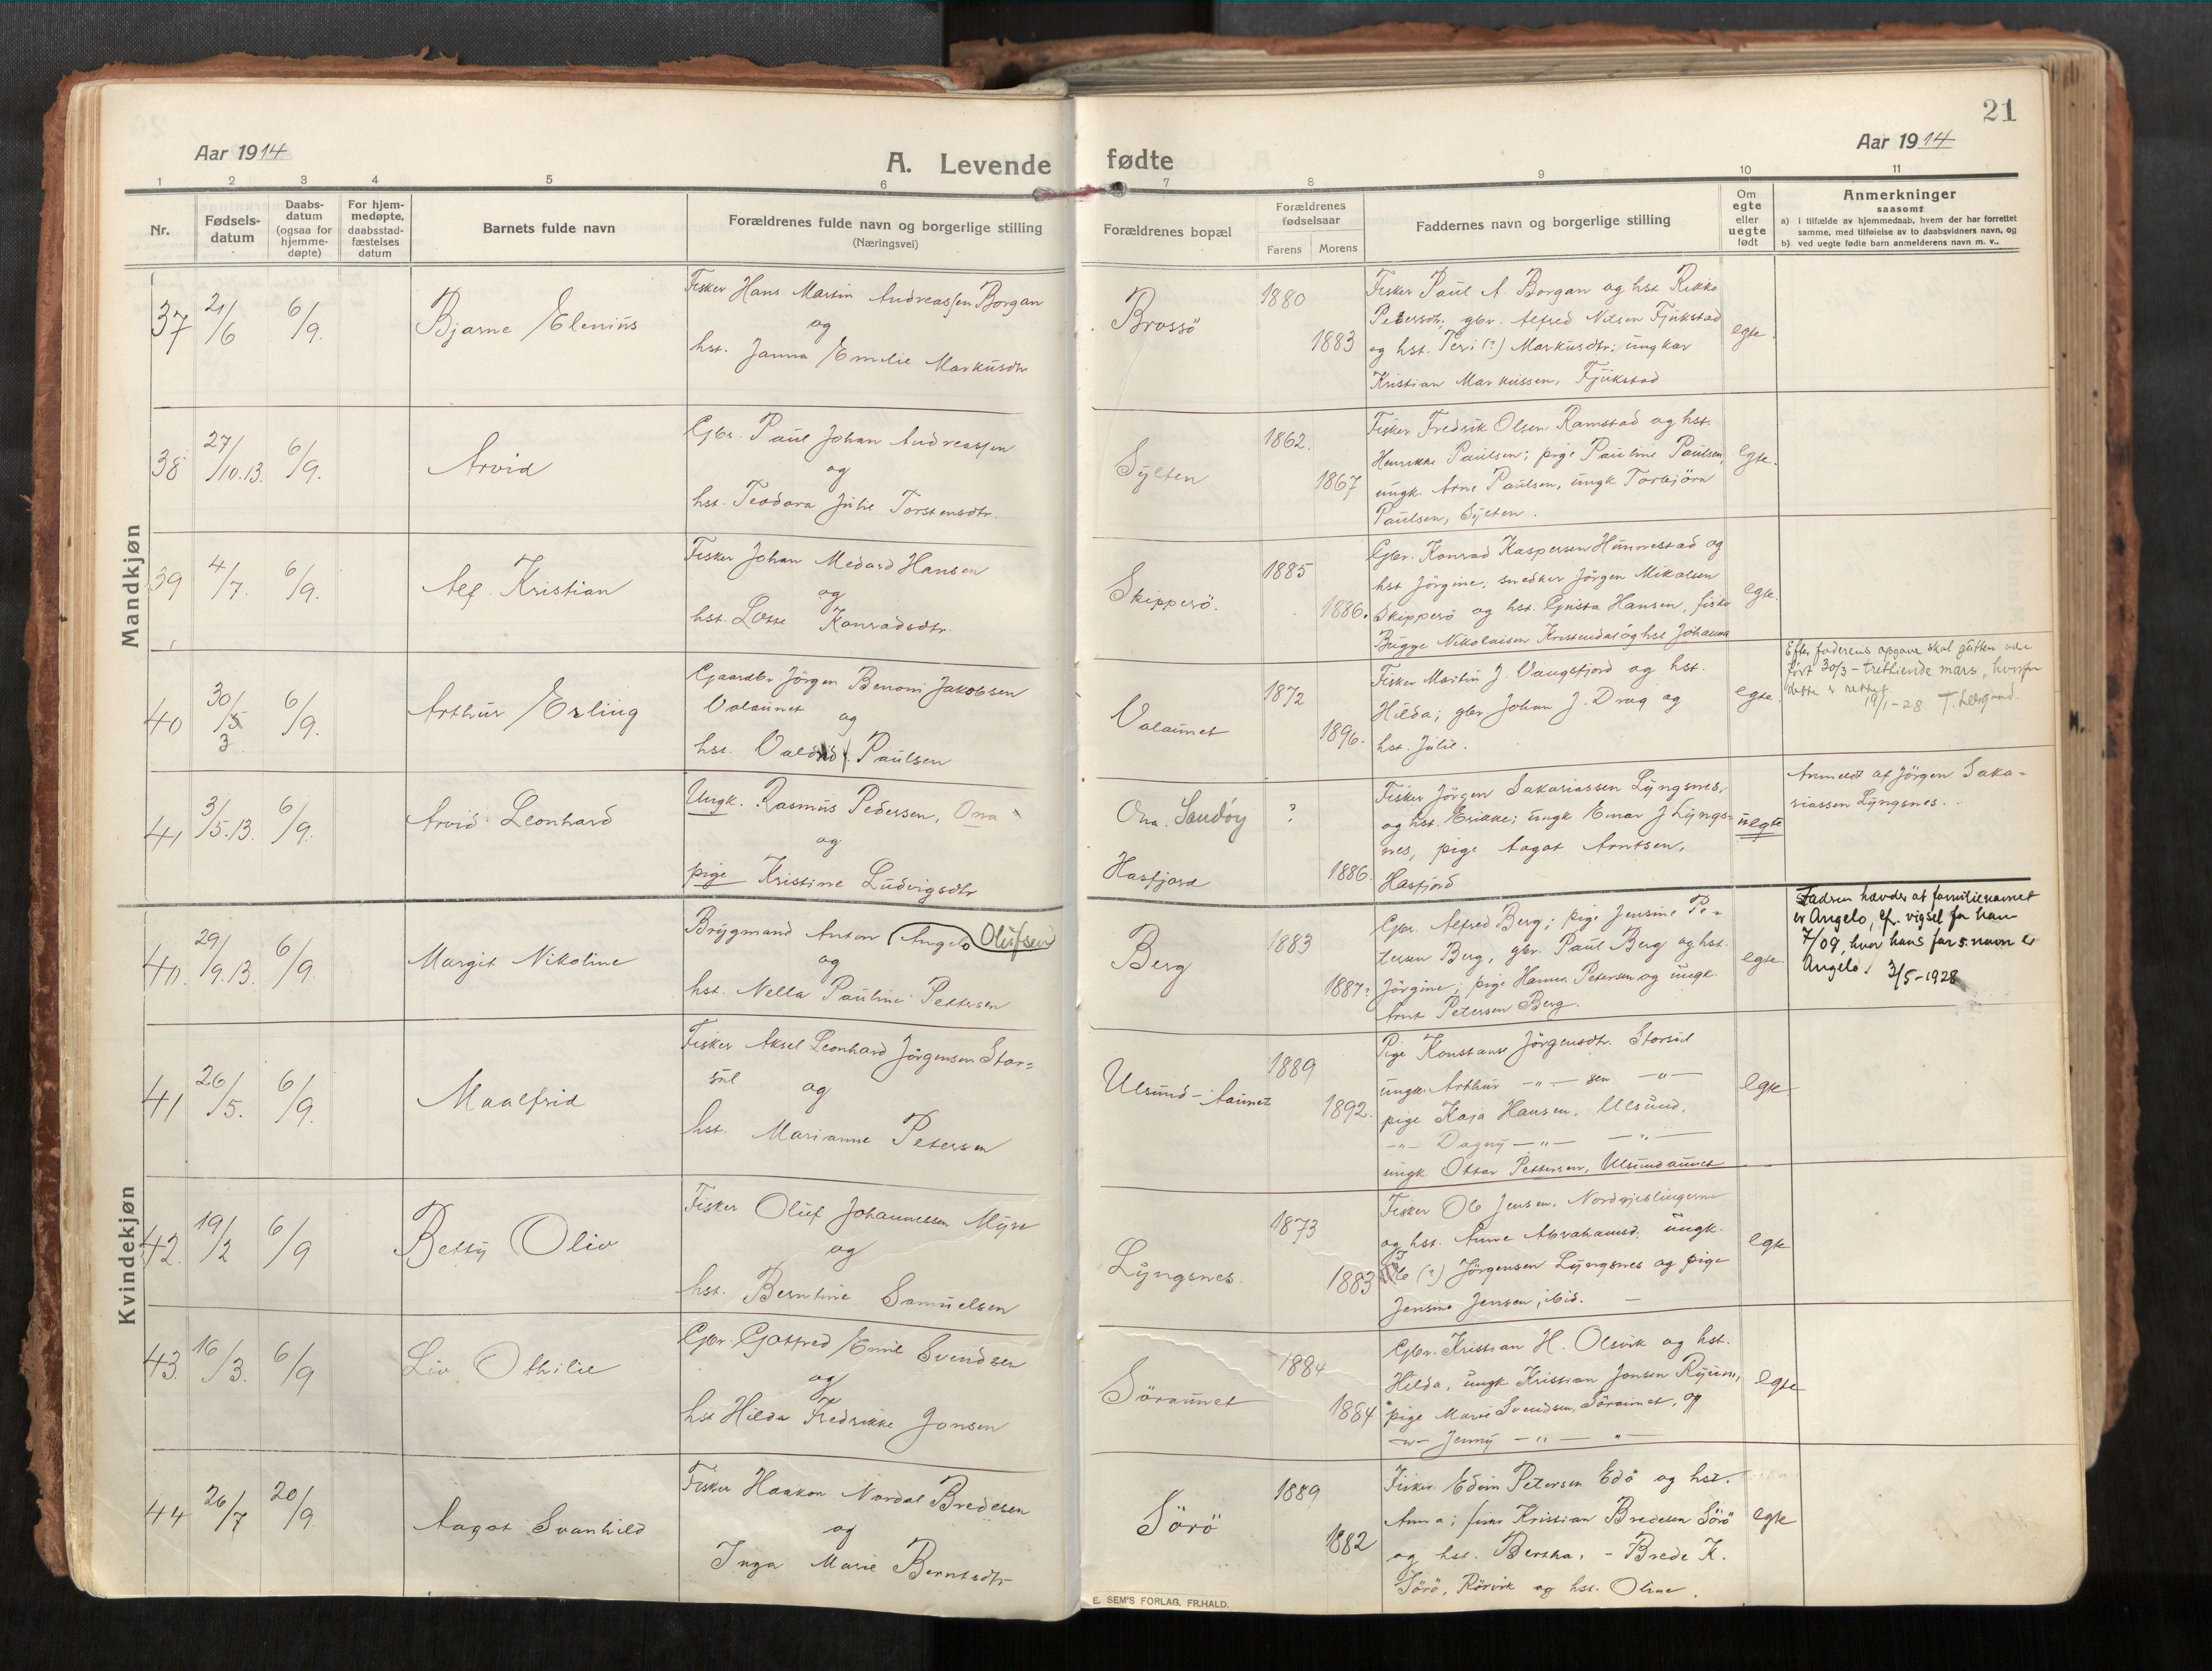 21
Aar 1914
A. Levende fødte
Aar 1914
1 2 3 4 5 6 7 8 9 10 11
Nr.
Fødsels-
datum
Daabs-
datum
(ogsaa for
hjemme-
døpte)
For hjem-
medøpte,
daabsstad-
fæstelses
datum
Barnets fulde navn
Forældrenes fulde navn og borgerlige stilling
(Næringsvei)
Forældrenes bopæl
Forældrenes
fødselsaar
Farens Morens
Faddernes navn og borgerlige stilling
Om
egte
eller
uegte
født
Anmerkninger
saasomt
a) i tilfælde av hjemmedaab, hvem der har forrettet
samme, med tilføielse av to daabsvidners navn, og
b) ved uegte fødte barn anmelderens navn m. v..
Mandkjøn
37 21/6 6/9. Bjarne Elenius
Fisker Hans Martin Andreassen Borgan
og
hst. Janna Emelie Markusdtr
Brossö 1880 1883
Fisker Paul A. Borgan og hst Rikke
Petersdtr; gbr. Alfred Nilsen Fjukstad
og hst. Peri (?) Markusdtr; ungkar
Kristian Markussen, Fjukstad
egte.
38 27/10.13. 6/9. Arvid
Gbr. Paul Johan Andreassen
og
hst. Teodora Julie Torstensdtr.
Sylten 1862. 1867
Fisker Fredrik Olsen Ramstad og hst.
Henrikke Paulsen; pige Pauline Paulsen,
ungk. Arne Paulsen, ungk Torbjörn
Paulsen, Sylten.
egte.
39 4/7. 6/9. Alf Kristian
Fisker Johan Medard Hansen
og
hst. Lotte Konradsdtr.
Skipperö. 1885 1886.
Gbr. Konrad Kaspersen Hunnestad og
hst Jörgine; snedker Jörgen Mikalsen
Skipperö og hst. Gusta Hansen, fisker
Bugge Nikolaisen Kristendal og hst Johanna
egte.
40 30/5 3 6/9. Arthur Erling
Gaardbr Jörgen Benoni Jakobsen
Valaunet og
hst. Valdrid Paulsen
Valaunet 1872 1896.
Fisker Martin J. Vaugsfjord og hst.
Hilda; gbr Johan J. Drag og
hst. Julie.
egte.
Efter faderens opgave skal gutten være
født 30/3 - trettiende mars, hvorfor
dette er rettet.
19/1-28.
41 3/5.13. 6/9. Arvid Leonhard
Ungk. Rasmus Pedersen, Ona
og
pige Kristine Ludvigsdtr
Ona. Sandöy ?
Hasfjord 1886.
Fisker Jörgen Sakariassen Lyngsnes,
og hst. Erikke; ungk Einar J Lyngs-
nes, pige Aagot Arntsen,
Hasfjord
uegte
Anmeldt af Jörgen Saka-
riassen Lyngsnes.
Kvindekjøn
40. 29/9.13. 6/9. Margit Nikoline
Brygmand Anton Angelo Olufsen
og
hst. Nella Pauline Pettersen
Berg 1883 1887.
Gbr. Alfred Berg; pige Jensine Pe-
tersen Berg, gbr. Paul Berg og hst.
Jörgine; pige Hanna Petersen og ungk.
Arnt Petersen Berg.
egte.
Fadren hævder at familienavnet
er Angelo, cf. vigsel for ham
7/09, hvor hans fars navn er
Angelo. 3/5-1928
41 26/5. 6/9. Maalfrid
Fisker Aksel Leonhard Jörgensen Stor-
sul og
hst. Marianne Petersen
Ulsund-Aaunet 1889 1892.
Pige Konstanse Jörgensdtr. Storsul
ungk. Arthur -"- sen -"-
pige Kaja Hansen, Ulsund,
-"- Dagny -"- -"-
ungk Ottar Pettersen, Ulsundaunet
egte.
42. 19/2 6/9 Betsy Oliv
Fisker Oluf Johannessen Myse
og
hst. Berntine Samuelsen
Lyngsnes. 1873 1883
Fisker Ole Jensen, Nordgjeslingerne
og hst. Anne Abrahamsd. ungk.
(?) Jörgensen Lyngsnes og pige
Jensine Jensen, ibid.
egte
43. 16/3. 6/9 Liv Othilie
Gbr. Gotfred Emil Svendsen
og
hst Hilda Fredrikke Jonsen
Söraunet 1884 1884
Gbr. Kristian H. Olsvik og hst.
Hilda, ungk Kristian Jonsen Ryum,
pige Marie Svendsen, Söraunet, og
-"- Jenny -"- "-
egte
44 26/7 20/9. Aagot Svanhild
Fisker Haakon Nordal Bredesen
og
Inga Marie Berntsdtr
Sörö 1889 1882
Fisker Edvin Petersen Edö og hst.
Anna; fisker Kristian Bredesen Sörö
og hst. Bertha, - Brede K.
Sörö, Rörvik og hst. Oline.
egte
E. SEM'S FORLAG, FR.HALD.